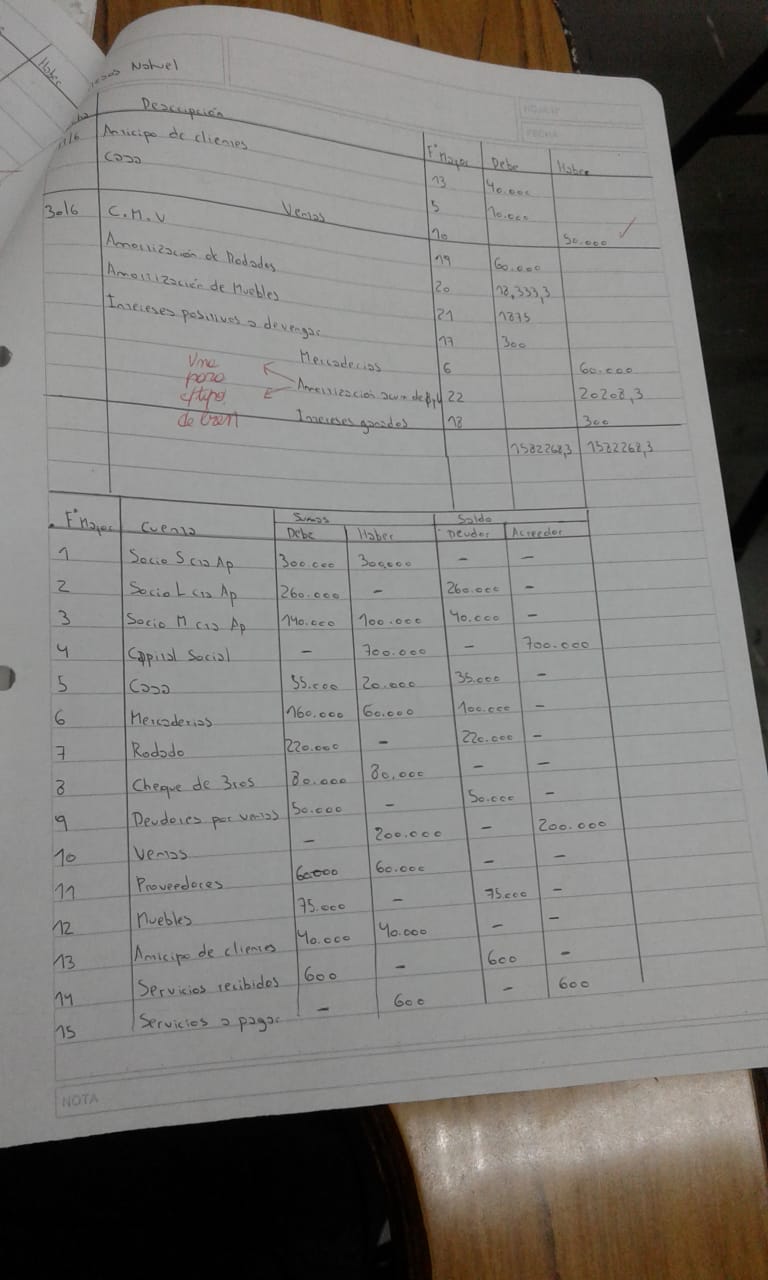 Nahuel
Descripción F° Mayor Debe Haber
Anticipo de clientes 13 40.000
Caja 5 10.000
Ventas 10 50.000
30/6 C.M.V 19 60.000
Amortización de Rodados 20 18,333,3
Amortización de Muebles 21 1875
Intereses positivos a devengar 17 300
Mercaderias 6 60.000
Amortización acum de 22 20208,3
Intereses ganados 18 300
Una
para
c/tipo
de bien
1582268,3 1582268,3
F° Mayor Cuenta Sumas Saldo
Debe Haber Deudor Acreedor
1 Socio S cta Ap 300.000 300,000 – –
2 Socio L cta Ap 260.000 – 260.000 –
3 Socio M cta Ap 140.000 100.000 40.000 –
4 Capital Social – 700.000 – 700.000
5 Caja 55.000 20.000 35.000 –
6 Mercaderias 160.000 60.000 100.000 –
7 Rodado 220.000 – 220.000 –
8 Cheque de 3ros 80.000 80,000 – –
9 Deudores por ventas 50.000 – 50.000 –
10 Ventas – 200.000 – 200.000
11 Proveedores 60000 60.000 – –
12 Muebles 75.000 – 75.000 –
13 Anticipo de clientes 40.000 40.000 – –
14 Servicios recibidos 600 – 600 –
15 Servicios a pagar – 600 – 600
NOTA